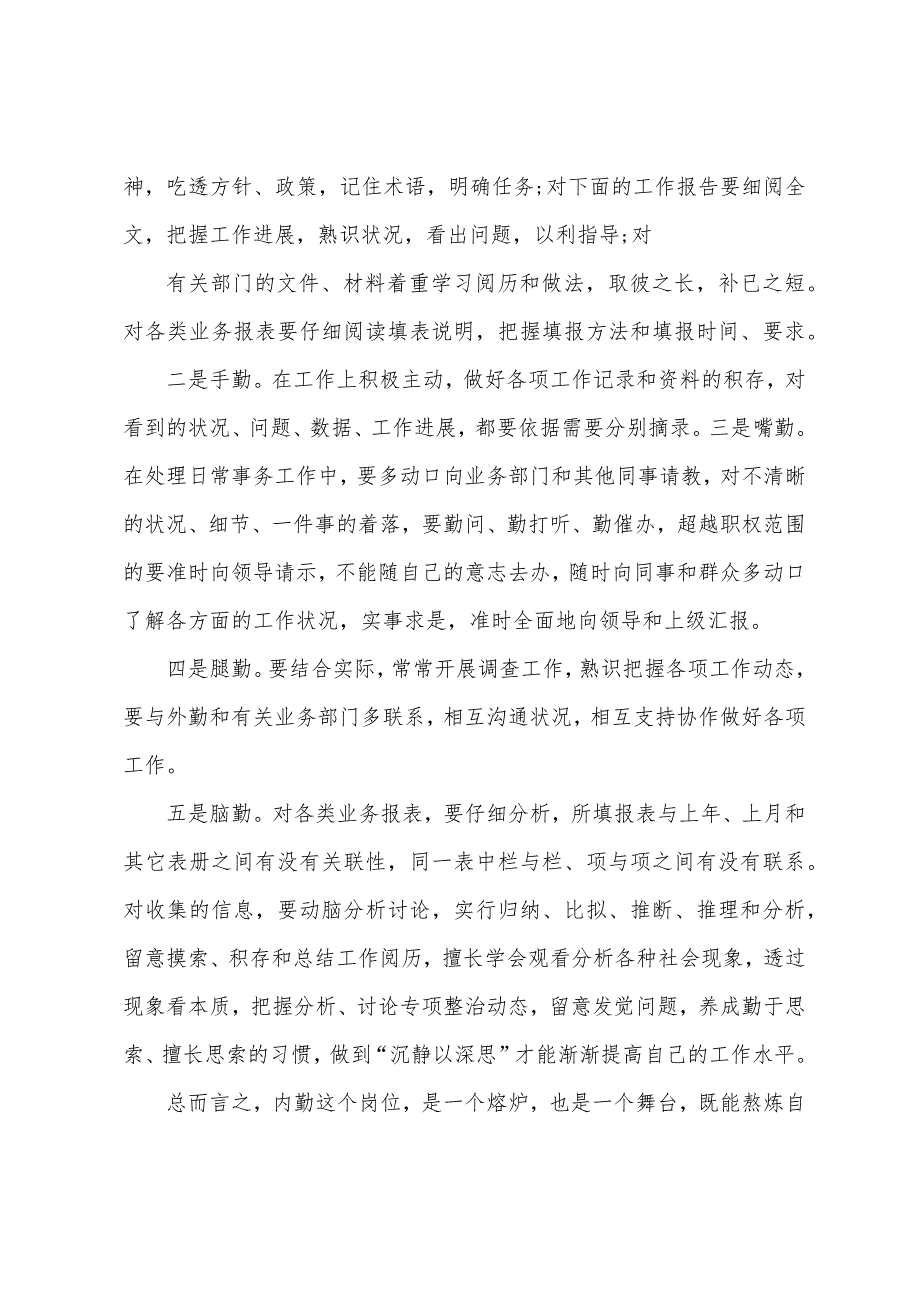 神，吃透方针、政策，记住术语，明确任务;对下面的工作报告要细阅全
文，把握工作进展，熟识状况，看出问题，以利指导;对
有关部门的文件、材料着重学习阅历和做法，取彼之长，补已之短。
对各类业务报表要仔细阅读填表说明，把握填报方法和填报时间、要求。
二是手勤。在工作上积极主动，做好各项工作记录和资料的积存，对
看到的状况、问题、数据、工作进展，都要依据需要分别摘录。三是嘴勤。
在处理日常事务工作中，要多动口向业务部门和其他同事请教，对不清晰
的状况、细节、一件事的着落，要勤问、勤打听、勤催办，超越职权范围
的要准时向领导请示，不能随自己的意志去办，随时向同事和群众多动口
了解各方面的工作状况，实事求是，准时全面地向领导和上级汇报。
四是腿勤。要结合实际，常常开展调查工作，熟识把握各项工作动态，
要与外勤和有关业务部门多联系，相互沟通状况，相互支持协作做好各项
工作。
五是脑勤。对各类业务报表，要仔细分析，所填报表与上年、上月和
其它表册之间有没有关联性，同一表中栏与栏、项与项之间有没有联系。
对收集的信息，要动脑分析讨论，实行归纳、比拟、推断、推理和分析，
留意摸索、积存和总结工作阅历，擅长学会观看分析各种社会现象，透过
现象看本质，把握分析、讨论专项整治动态，留意发觉问题，养成勤于思
索、擅长思索的习惯，做到“沉静以深思”才能渐渐提高自己的工作水平。
总而言之，内勤这个岗位，是一个熔炉，也是一个舞台，既能熬炼自